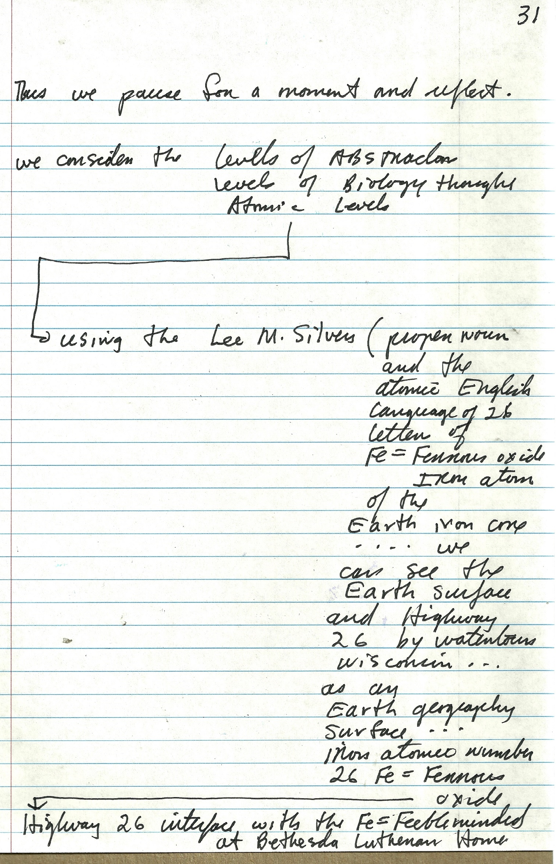 31
Thus we pause for a moment and reflect.
we consider the levels of ABstraction
levels of Biology thought
Atomic Levels
using the Lee M. Silvers (proper noun
and the
atomic English
language of 26
letter of
Fe = Ferrous oxide
Iron atom
of the
Earth iron core
.... we
can see the
Earth surface
and Highway
26 by watertown
wisconsin ...
as an
Earth geography
surface ...
Iron atomic number
26 Fe = Ferrous
oxide
Highway 26 interface with the Fe = Feebleminded
at Bethesda Lutheran Home